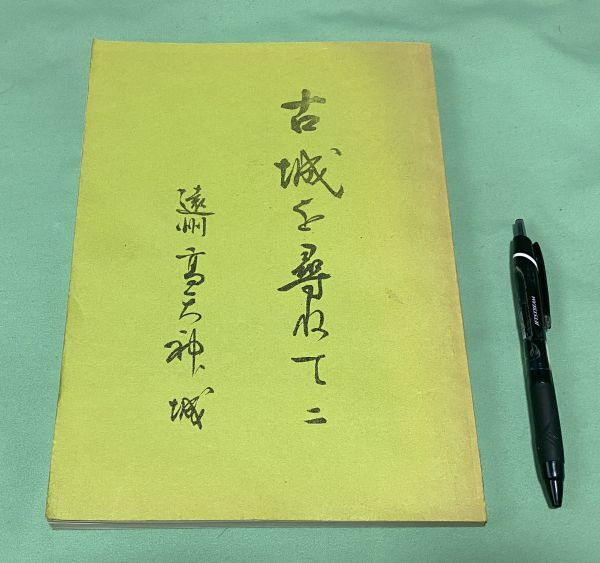 古城を尋ねて 二
遠州 高天神城
JETSTREAM